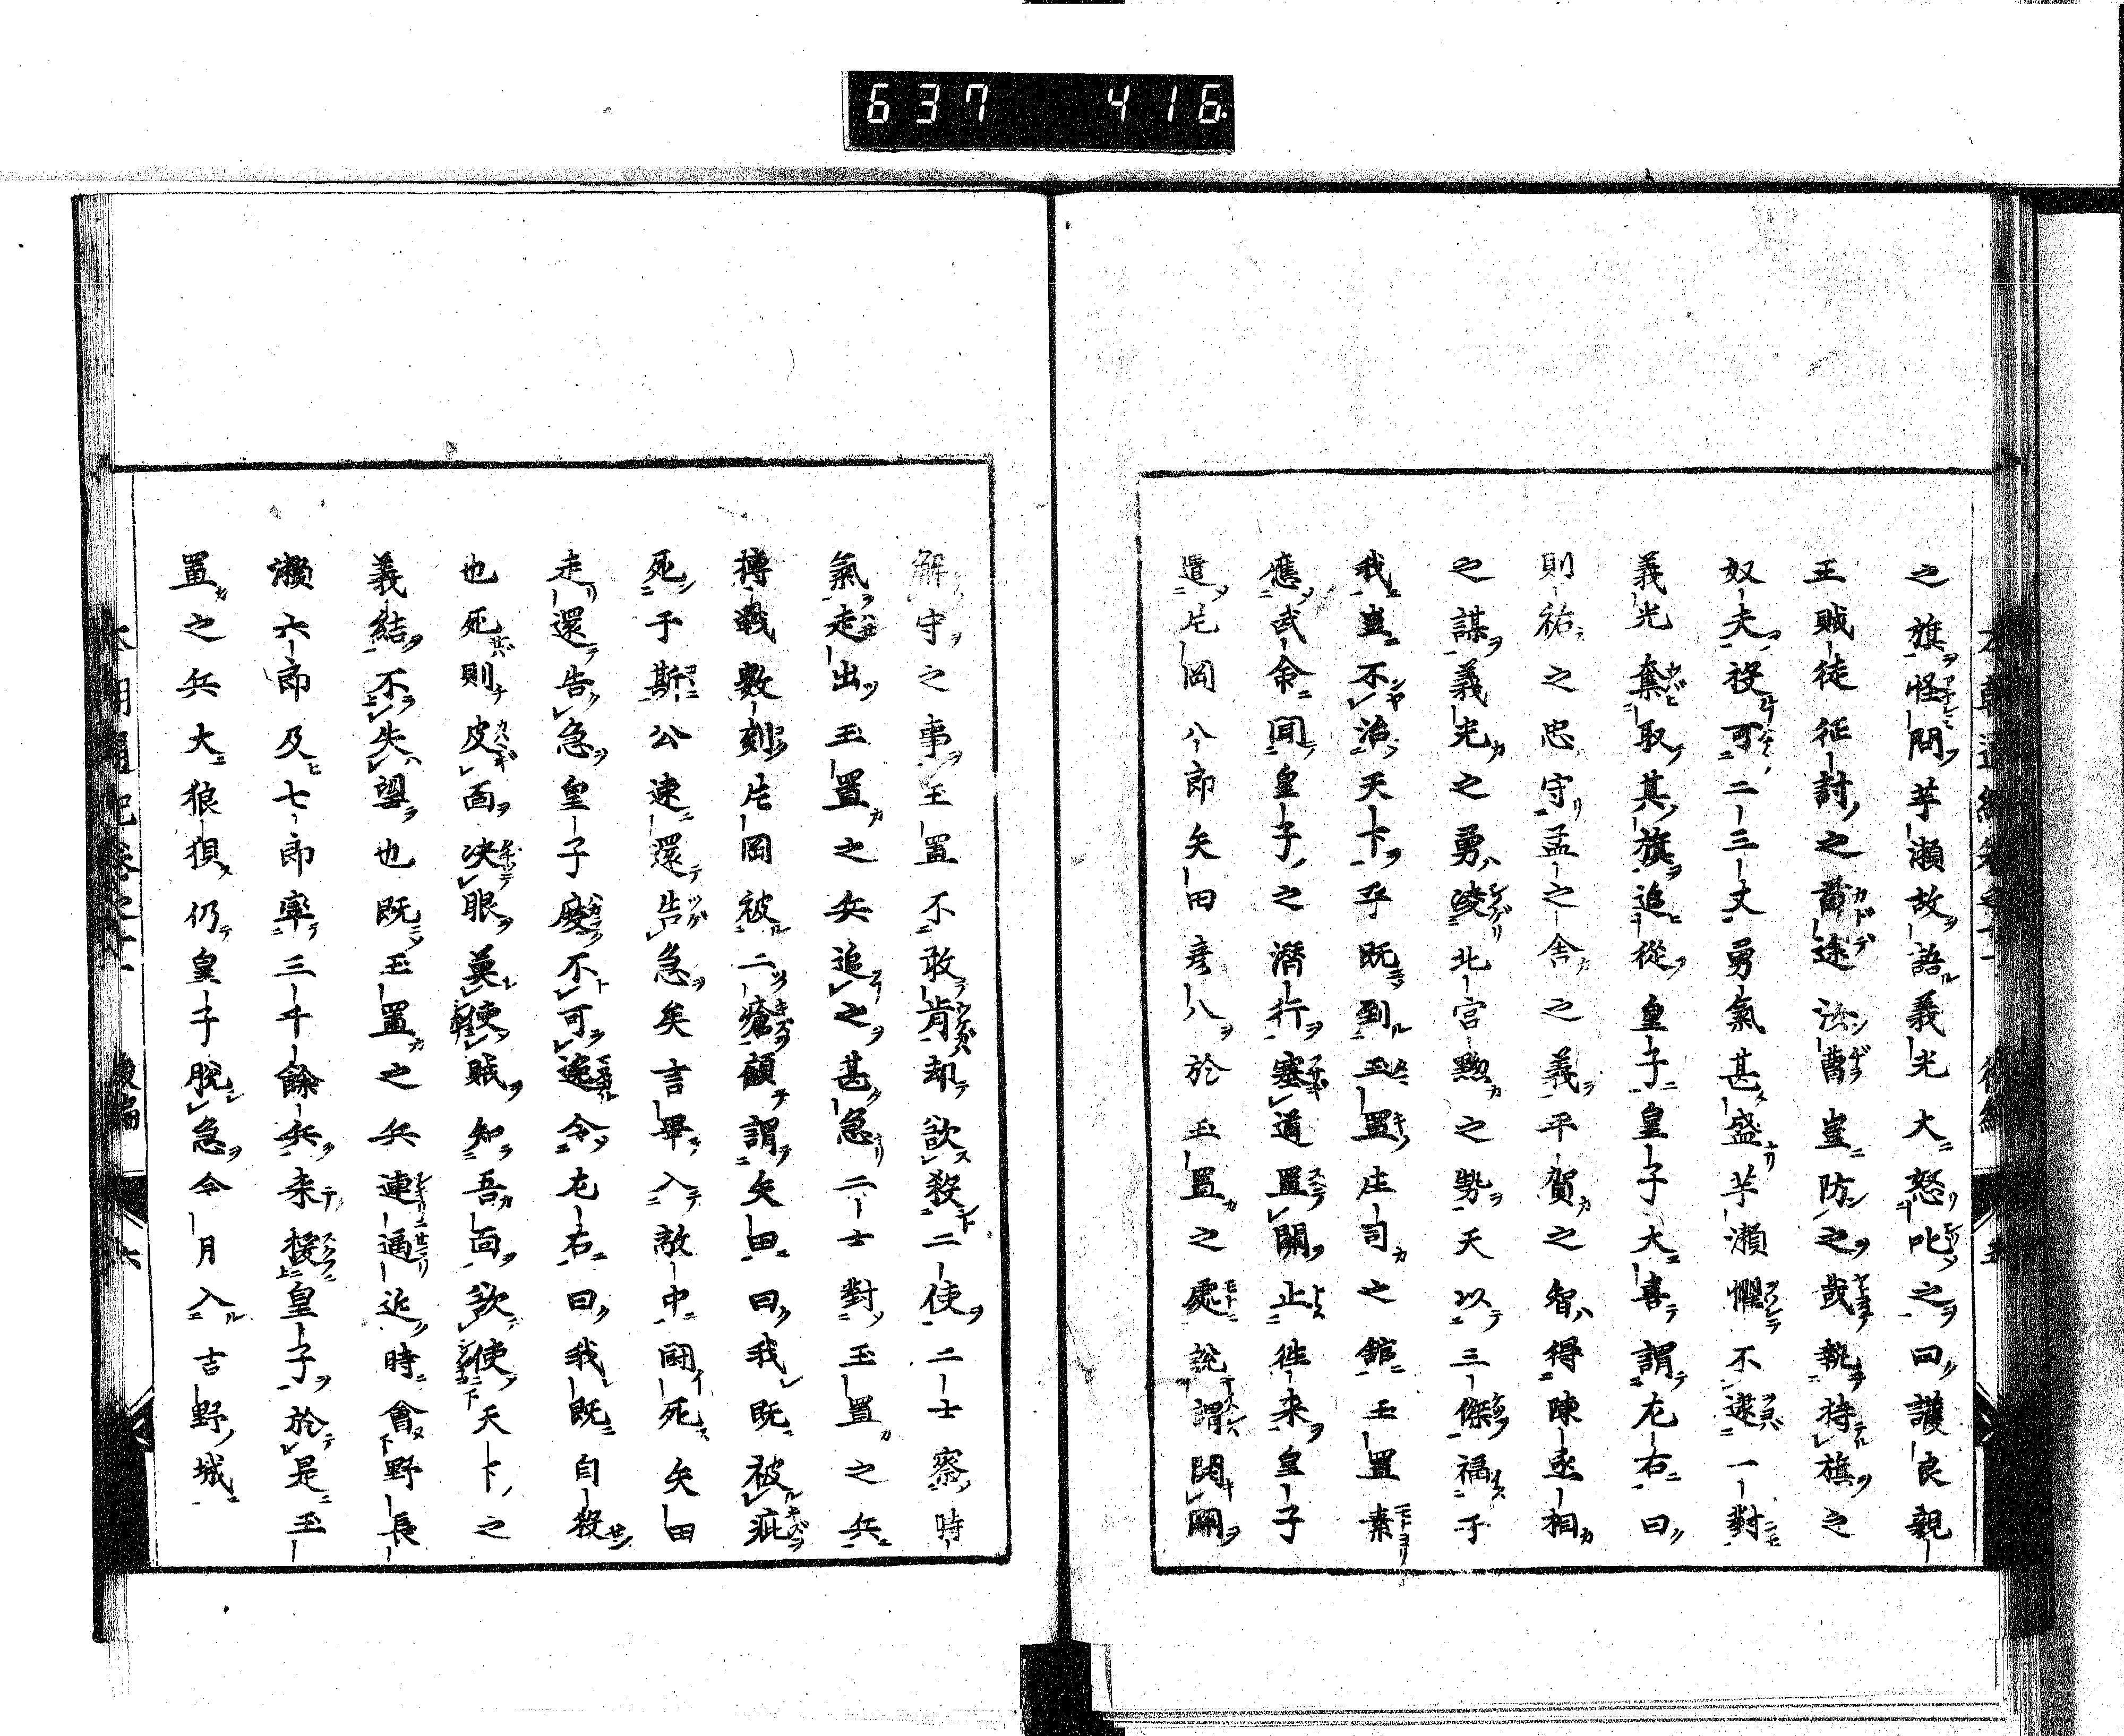 637 416
之旗怪問芋瀨故語義光大怒叱之曰護良親
王賊徒征討之首途汝曹豈防之哉執持旗之
奴夫投可二三丈勇氣甚盛芋瀨懼不逮一對
義光奪取其旗追從皇子皇子大喜謂左右曰
則祐之忠守孟之舍之義平賀之智得陳丞相
之謀義光之勇凌北宮黝之勢天以三傑福于
我豈不治天下乎既到玉置庄司之館玉置素
應武命聞皇子之潛行塞道置關止徃来皇子
遣片岡八郎矢田彦八於玉置之處說謂開關
解守之事玉置不敢肯却欲殺二使二士察時
氣走出玉置之兵追之甚急二士對玉置之兵
搏戰數刻片岡被二瘡顧謂矢田曰我既被疵
死于斯公速還告急矣言畢入敵中鬪死矣田
走還告急皇子度不可逸令左右曰我既自殺
也死則皮面决眼莫使賊知吾面欲使天下之
義結不失望也既玉置之兵連逼近時會野長
瀨六郎及七郎率三千餘兵来援皇子於是玉
置之兵大狼狽仍皇子脫急今月入吉野城